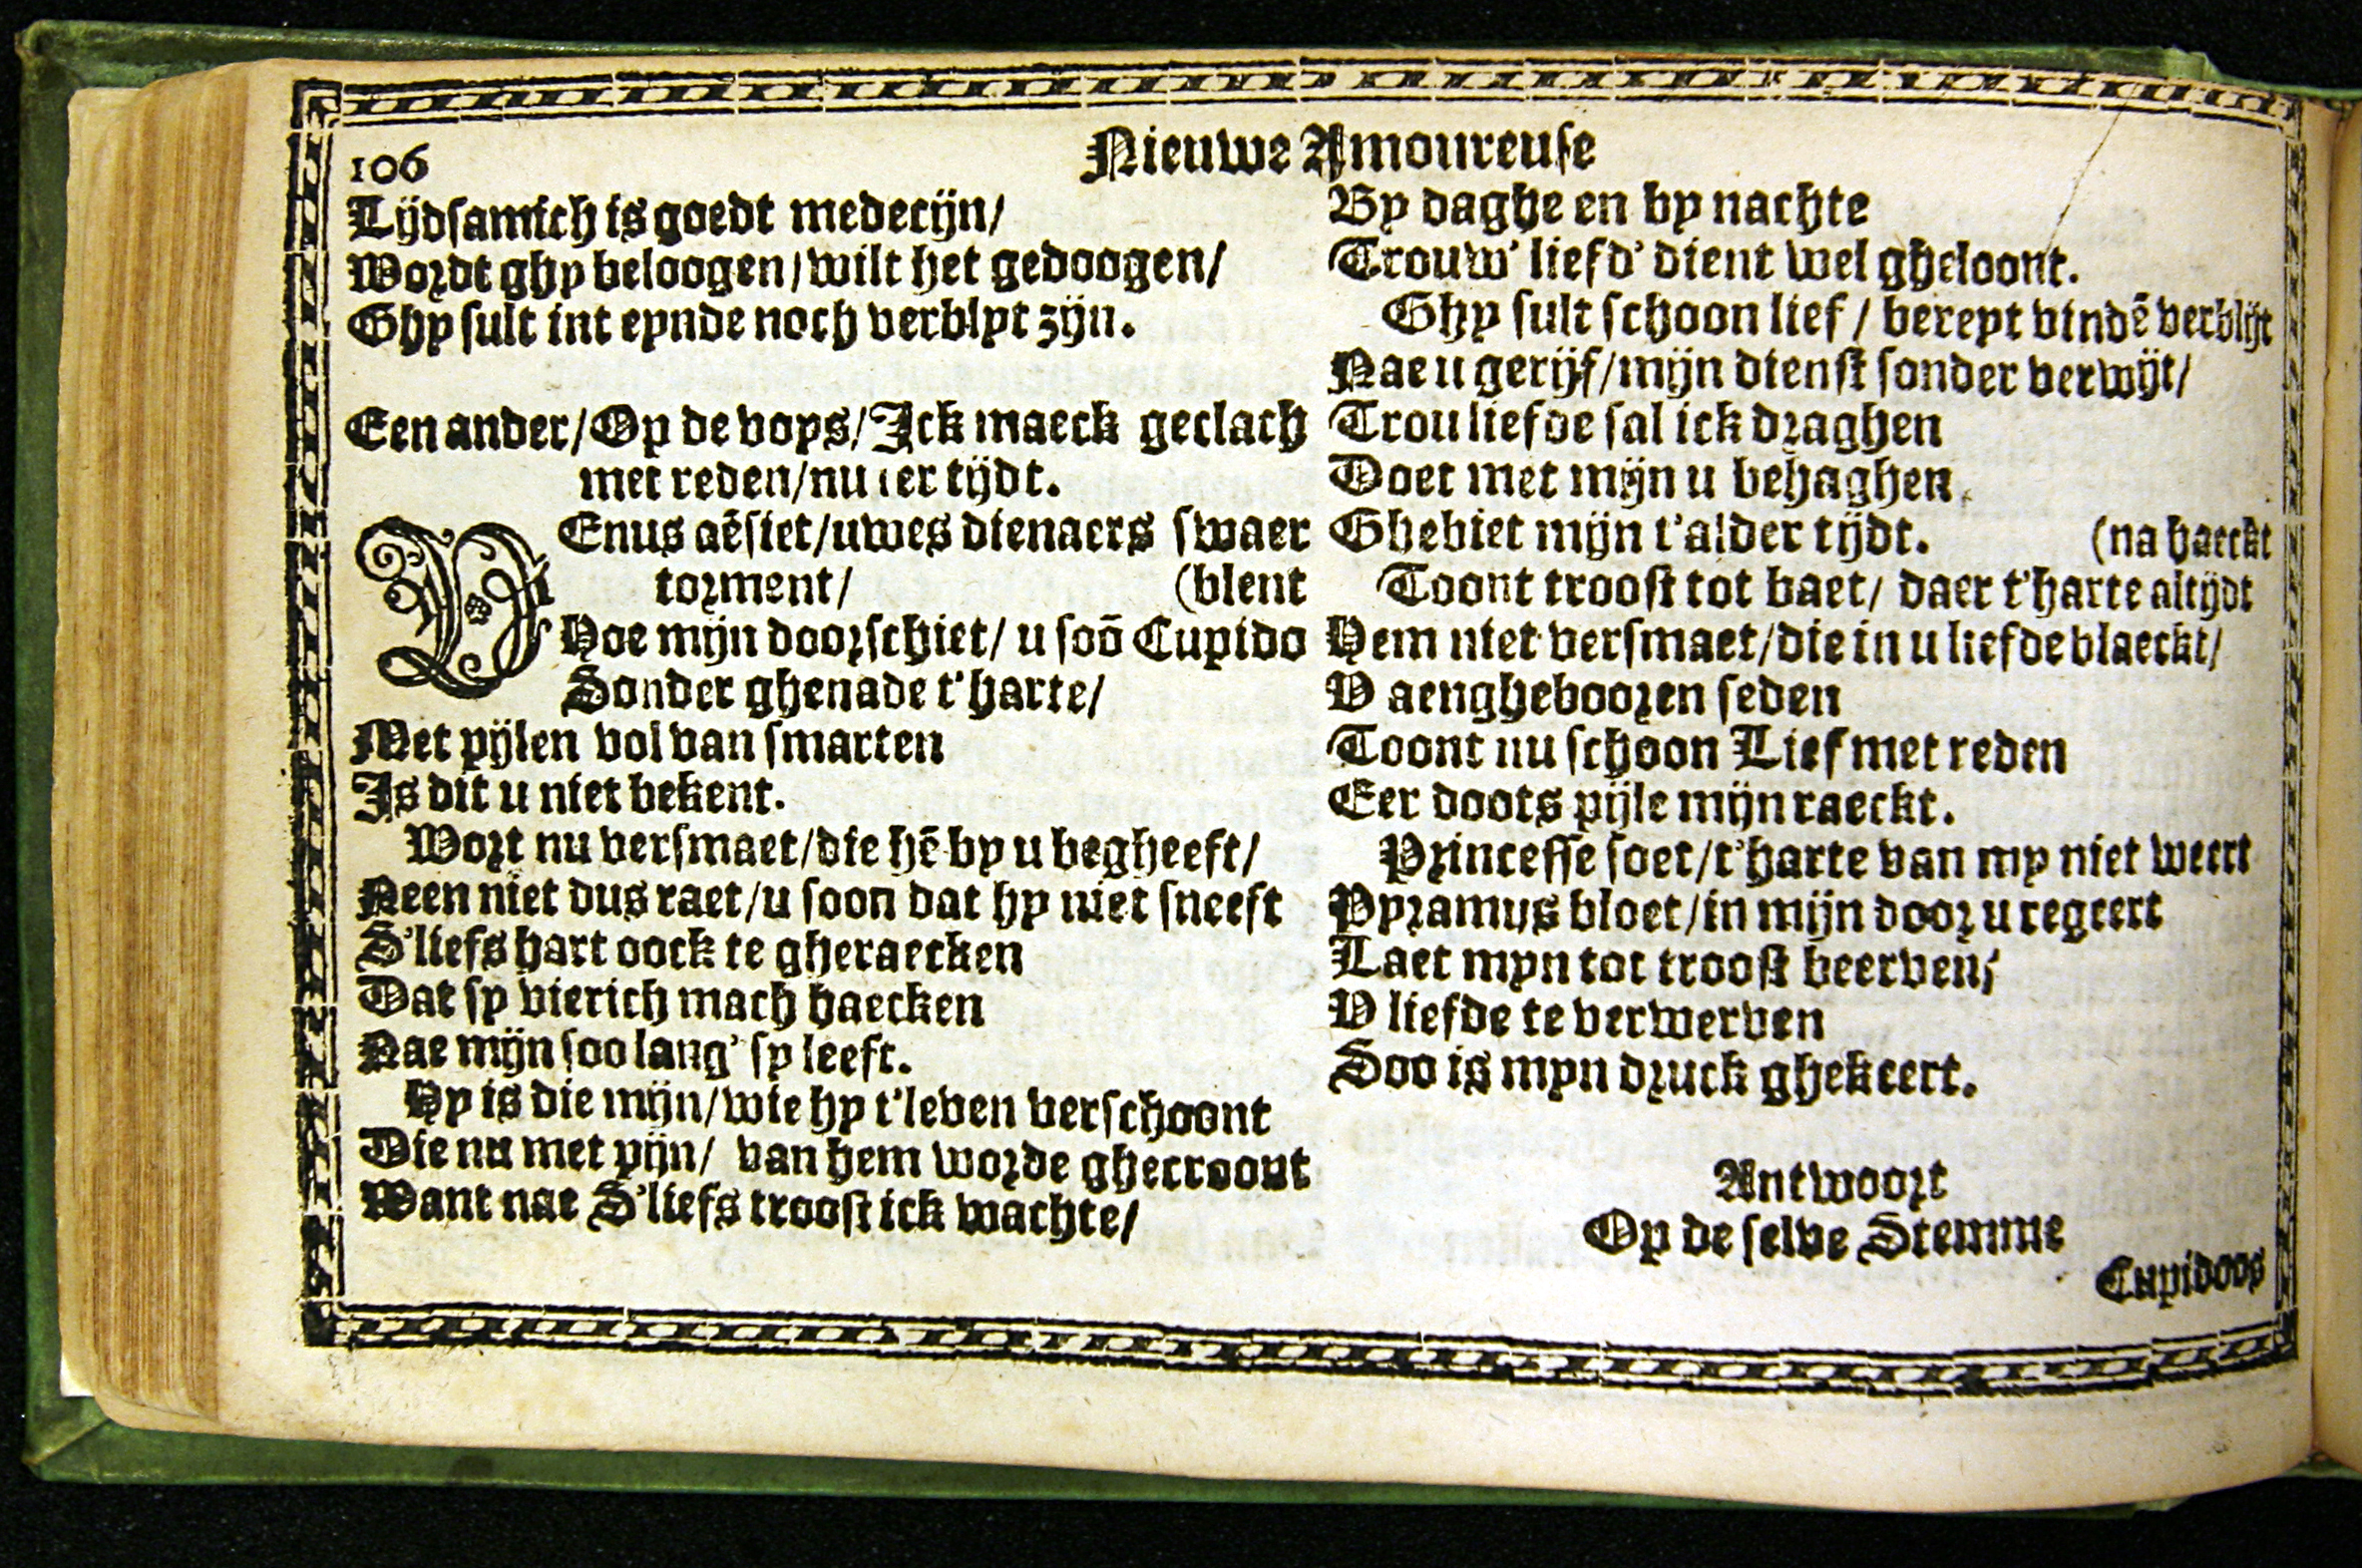 106
Nieuwe Amoureuse
Lijdsamich is goedt medecijn/
Wordt ghy beloogen/wilt het gedoogen/
Ghy sult int eynde noch verblyt zijn.
Een ander/Op de voys/Ick maeck geclach
met reden/nu ter tijdt.
VEnus aēsiet/uwes dienaers swaer
torment/ (blent
Hoe mijn doorschiet/ u soō Cupido
Sonder ghenade t'harte/
Met pijlen vol van smarten
Is dit u niet bekent.
Wort nu versmaet/die hē by u begheeft/
Neen niet dus raet/u soon dat hy niet sneeft
S'liefs hart oock te gheraecken
Dat sy vierich mach haecken
Nae mijn soo lang' sy leeft.
Hy is die mijn/wie hy t'leven verschoont
Die nu met pijn/ van hem worde ghecroont
Want nae S'liefs troost ick wachte/
By daghe en by nachte
Trouw' liefd' dient wel gheloont.
Ghy sult schoon lief/ bereyt vindē verblijt
Nae u gerijf/mijn dienst sonder verwijt/
Trou liefde sal ick draghen
Doet met mijn u behaghen
Ghebiet mijn t'alder tijdt. (na haeckt
Toont troost tot baet/ daer t'harte altijdt
Hem niet versmaet/die in u liefde blaeckt/
V aengheboren seden
Toont nu schoon Lief met reden
Eer doots pijle mijn raeckt.
Princesse soet/t'harte van my niet weert
Pyramus bloet/in mijn door u regeert
Laet myn tot troost beerven/
V liefde te verwerven
Soo is myn druck ghekeert.
Antwoort
Op de selve Stemme
Cupidoos